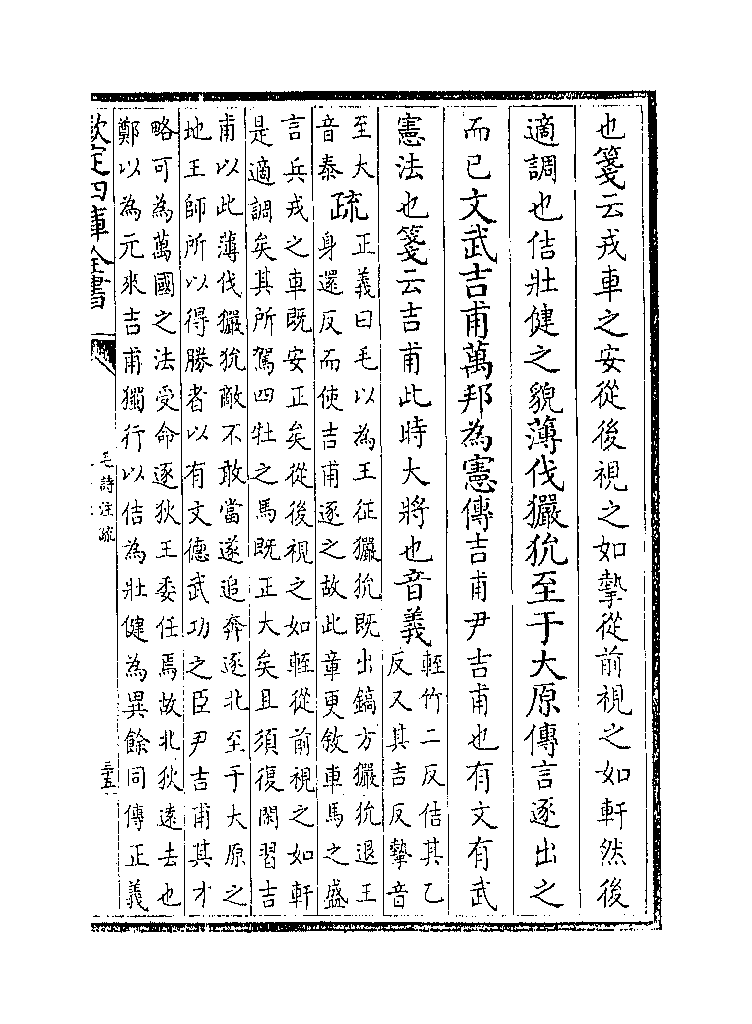 也箋云戎車之安從後視之如摯從前視之如軒然後
適調也佶壯健之貌薄伐玁狁至于大原傳言逐出之
而已文武吉甫萬邦為憲傳吉甫尹吉甫也有文有武
憲法也箋云吉甫此時大將也音義
輊竹二反佶其乙
反又其吉反摯音
至大
音泰
疏
正義曰毛以為王征玁狁既出鎬方玁狁退王
身還反而使吉甫逐之故此章更敘車馬之盛
言兵戎之車既安正矣從後視之如輊從前視之如軒
是適調矣其所駕四牡之馬既正大矣且須復閑習吉
甫以此薄伐玁狁敵不敢當遂追奔逐北至于大原之
地王師所以得勝者以有文德武功之臣尹吉甫其才
略可為萬國之法受命逐狄王委任焉故北狄遠去也
鄭以為元來吉甫獨行以佶為壯健為異餘同傳正義
欽定四庫全書
毛詩注疏
三五